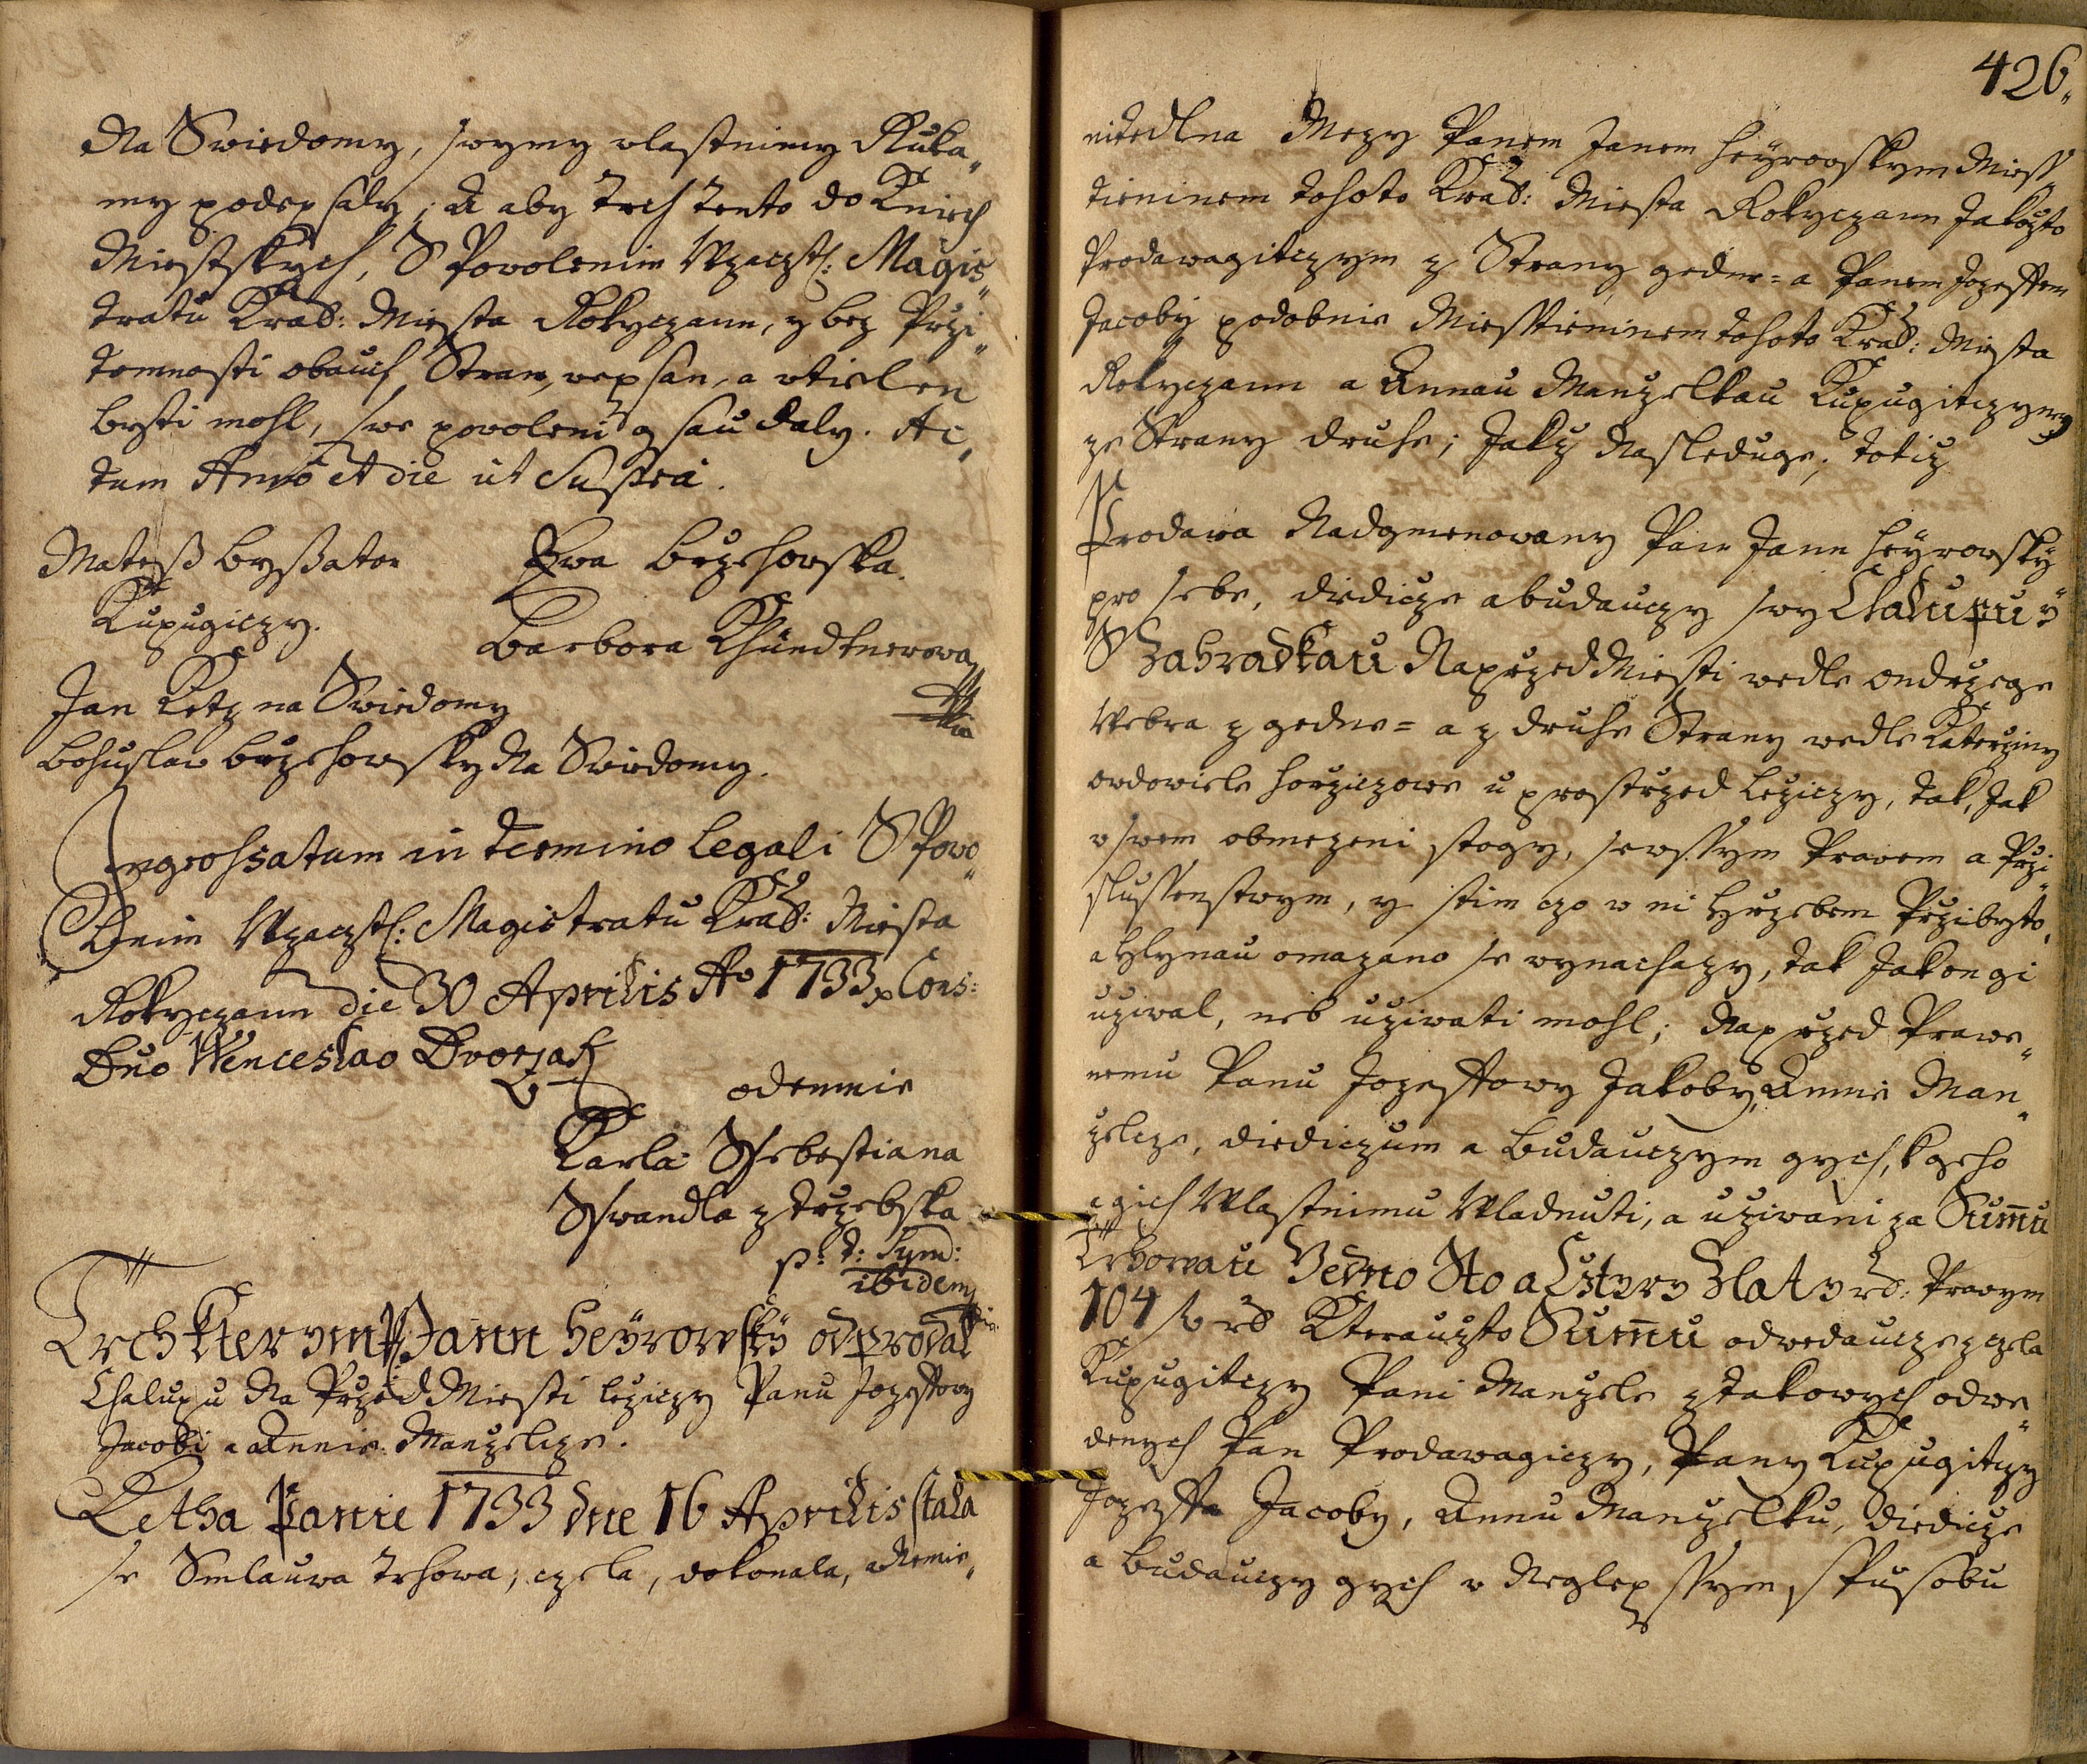 Na Swiedomy, swymy vlastnimy Ruka„
my podepsaly; A aby Trh Tento do Knieh
Miestskych, S Powolenim Wzaczt: Magis„
tratu Kral: Miesta Rokyczann, y bez Przi„
tomnosti obauch Stran, wepsan, a wtielen
beyti mohl, swe powoleni g sau daly. Ac„
tum Anno et die ut Supra.
Mateß Byßator Ewa Brzehowska.
Kupugiczy. Barbora Khündtnerowa
Jan Kotz na Swiedomy
Bohuslaw Brzehowsky Na Swiedomy.
Ingrossatum in termino legali S Powo„
lenim Wzaczt: Magistratu Kral: Miesta
Rokyczann die 30 Aprilis Ao 1733 p Cons:
Dno Wenceslao Dworzak
odemnie
Karla Ssebestiana
Sswandla z Trzebska
p: t: Synd:
ibidem
Trch kterym P Jann Heyrowsky odprodal
Chalupu Na Przed Miesti leziczy Panu Jozeffowy
Jacobi a Annie Manzelcze.
Letha Panie 1733 dne 16 Aprilis stala
se Smlauwa Trhowa, czela, dokonala, a Nemie„
426„
nitedlna Mezy Panem Janem Heyrowskym Miess„
tieninem tohoto Kral: Miesta Rokyczann Jakozto
Prodawagitczym z Strany gedne= a Panem Jozeffem
Jacoby podobnie Miesstieninem tohoto Kral: Miesta
Rokyczann a Annau Manzelkau Kupugitczymy
ze Strany druhe; Jakz Nasleduge; totiz
Prodawa Nadgmenowany Pan Jann Heyrowsky
pro sebe, diedicze a budauczy swy Chalupu y
S Zahradkau Na przed Miesti wedle Ondrzege
Webra z gedne= a z druhe Strany wedle Katerziny
owdowiele Horziczowe u prostrzed leziczy, tak, Jak
w swem obmezeni stogy, se wssym Prawem a Przi„
slussenstwym, y stim czo w ni Hrzebem Przibyto,
a Hlynau omazano se wynachazy, tak Jakon gi
uziwal, neb uziwati mohl; Naprzed Prawe„
nemu Panu Jozeffowy Jakoby, Annie Man„
zelcze, diediczum a Budauczym gych, k geho
a gich Wlastnimu Wladnuti, a uziwani za Summu
Trhowau Jedno Sto a Cztyry Zlaty rd: Prawym
104 fl rd Kterauzto Summu odwedaucze z czela
Kupugitczy Pani Manzele z takowych odwe„
denych Pan Prodawagiczy, Pany Kupugitczy
Jozeffa Jacoby, Annu Manzelku, diedicze
a Budauczy gych w Neglepssym spusobu